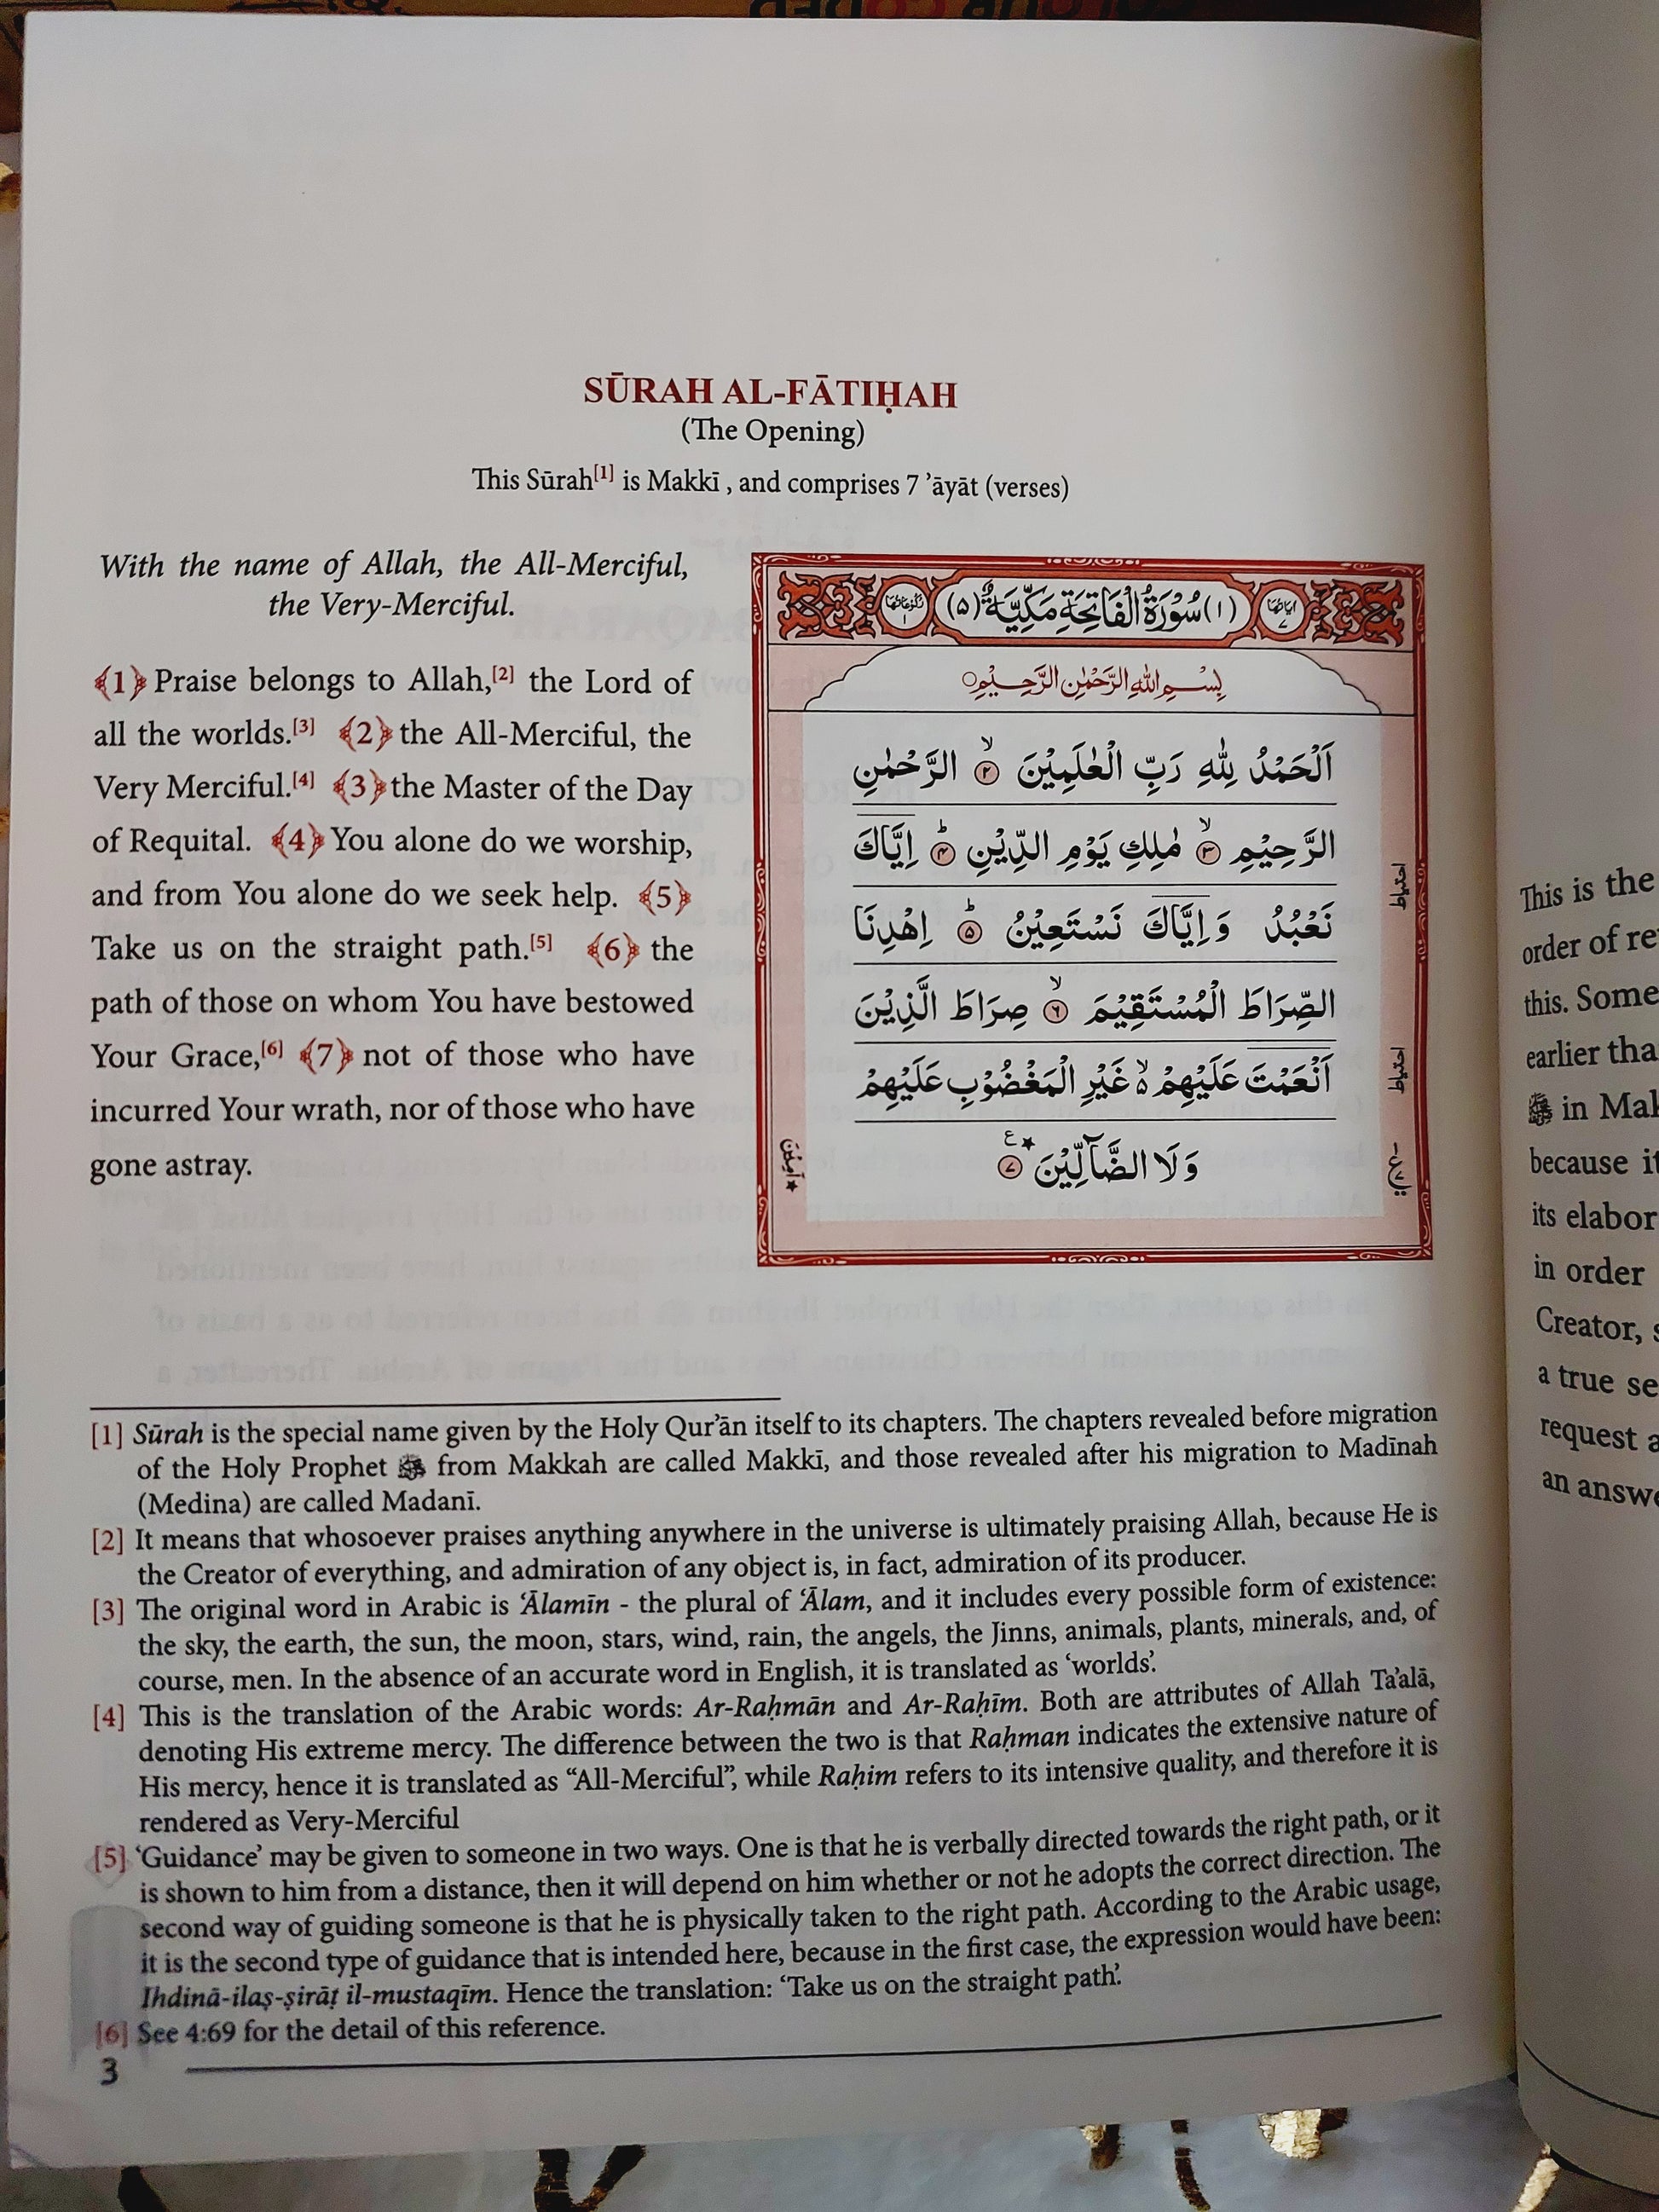 SŪRAH AL-FĀTIḤAH
(The Opening)
This Sūrah[1] is Makkī , and comprises 7 ’āyāt (verses)
With the name of Allah, the All-Merciful,
the Very-Merciful.
﴾1﴿ Praise belongs to Allah,[2] the Lord of
all the worlds.[3] ﴾2﴿ the All-Merciful, the
Very Merciful.[4] ﴾3﴿ the Master of the Day
of Requital. ﴾4﴿ You alone do we worship,
and from You alone do we seek help. ﴾5﴿
Take us on the straight path.[5] ﴾6﴿ the
path of those on whom You have bestowed
Your Grace,[6] ﴾7﴿ not of those who have
incurred Your wrath, nor of those who have
gone astray.
اٰیاتھا ۷ (۱) سُوْرَةُ الْفَاتِحَةِ مَكِّيَّةٌ (۵) رکوعاتھا ۱
بِسْمِ اللهِ الرَّحْمٰنِ الرَّحِيْمِ
اَلْحَمْدُ لِلّٰهِ رَبِّ الْعٰلَمِيْنَ ۙ ۲ الرَّحْمٰنِ
الرَّحِيْمِ ۙ ۳ مٰلِكِ يَوْمِ الدِّيْنِ ؕ ۴ اِيَّاكَ
نَعْبُدُ وَاِيَّاكَ نَسْتَعِيْنُ ؕ ۵ اِهْدِنَا
الصِّرَاطَ الْمُسْتَقِيْمَ ۙ ۶ صِرَاطَ الَّذِيْنَ
اَنْعَمْتَ عَلَيْهِمْ ۙ۬ غَيْرِ الْمَغْضُوْبِ عَلَيْهِمْ
وَلَا الضَّآلِّيْنَ ٭ ع ۷
احتیاط
احتیاط
٭ اٰمِيْن
[1] Sūrah is the special name given by the Holy Qur’ān itself to its chapters. The chapters revealed before migration
of the Holy Prophet ﷺ from Makkah are called Makkī, and those revealed after his migration to Madīnah
(Medina) are called Madanī.
[2] It means that whosoever praises anything anywhere in the universe is ultimately praising Allah, because He is
the Creator of everything, and admiration of any object is, in fact, admiration of its producer.
[3] The original word in Arabic is ‘Ālamīn - the plural of ‘Ālam, and it includes every possible form of existence:
the sky, the earth, the sun, the moon, stars, wind, rain, the angels, the Jinns, animals, plants, minerals, and, of
course, men. In the absence of an accurate word in English, it is translated as ‘worlds’.
[4] This is the translation of the Arabic words: Ar-Raḥmān and Ar-Raḥīm. Both are attributes of Allah Ta’alā,
denoting His extreme mercy. The difference between the two is that Raḥman indicates the extensive nature of
His mercy, hence it is translated as “All-Merciful”, while Raḥim refers to its intensive quality, and therefore it is
rendered as Very-Merciful
[5] ‘Guidance’ may be given to someone in two ways. One is that he is verbally directed towards the right path, or it
is shown to him from a distance, then it will depend on him whether or not he adopts the correct direction. The
second way of guiding someone is that he is physically taken to the right path. According to the Arabic usage,
it is the second type of guidance that is intended here, because in the first case, the expression would have been:
Ihdinā-ilaṣ-ṣirāṭ il-mustaqīm. Hence the translation: ‘Take us on the straight path’.
[6] See 4:69 for the detail of this reference.
3
This is the
order of re
this. Some
earlier tha
ﷺ in Mak
because it
its elabor
in order
Creator, s
a true se
request a
an answe